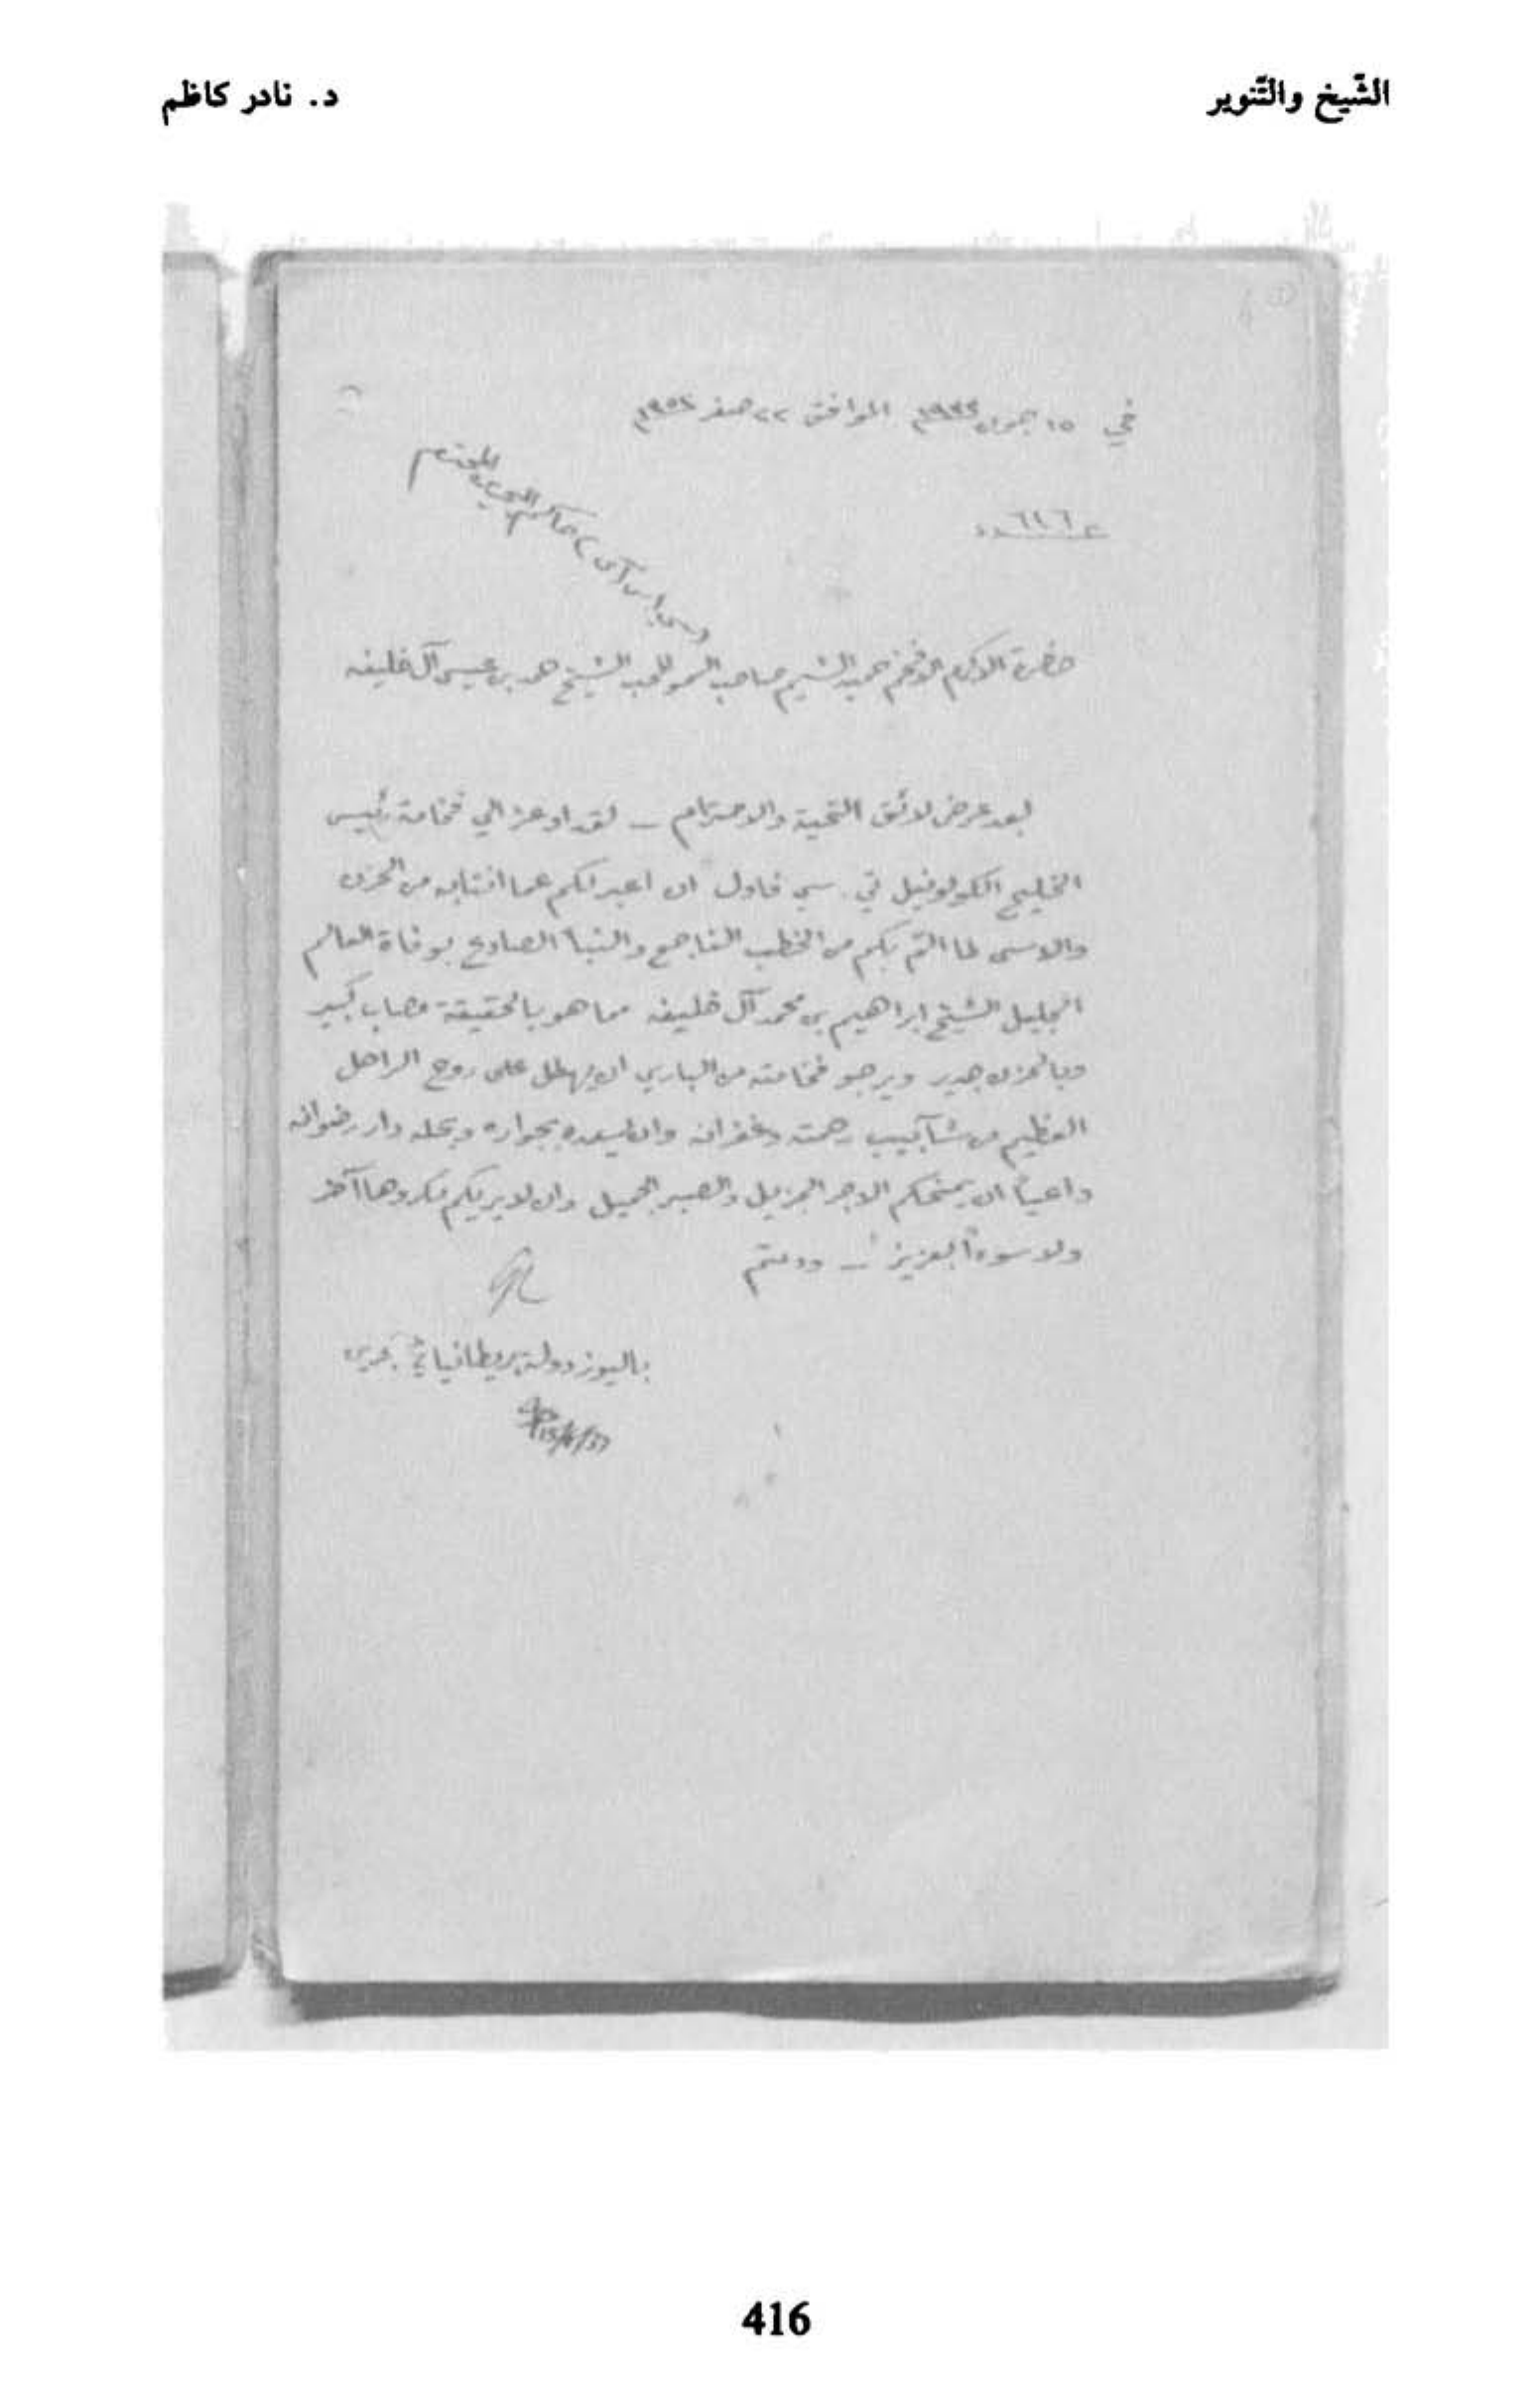 الشّيخ والتّنوير
د. نادر كاظم
في ١٥ جون ١٩٣٣م الموافق ٢٢ صفر ١٣٥٢م
حضرة الاكرم الافخم حميد الشيم صاحب السمو المحب الشيخ حمد بن عيسى آل خليفه
سي اس آي حاكم البحرين المحترم
بعد عرض لائق التحية والاحترام – لقد اوعز الي فخامة رئيس
الخليج الكولونيل تي. سي فاول ان اعبر لكم عما انتابه من الحزن
والاسى لما الم بكم من الخطب الفاجع والنبأ الصادع بوفاة العالم
الجليل الشيخ ابراهيم بن محمد آل خليفه مما هو بالحقيقة مصاب كبير
وبالحزن جدير ويرجو فخامته من الباري ان يهطل على روح الراحل
العظيم من شآبيب رحمته وغفرانه وان يسعده بجواره ويحله دار رضوانه
داعياً ان يمنحكم الاجر الجزيل والصبر الجميل وان لا يريكم مكروها آخر
ولا سوءاً بعزيز – ودمتم
باليوز دولة بريطانيا في بحرين
416